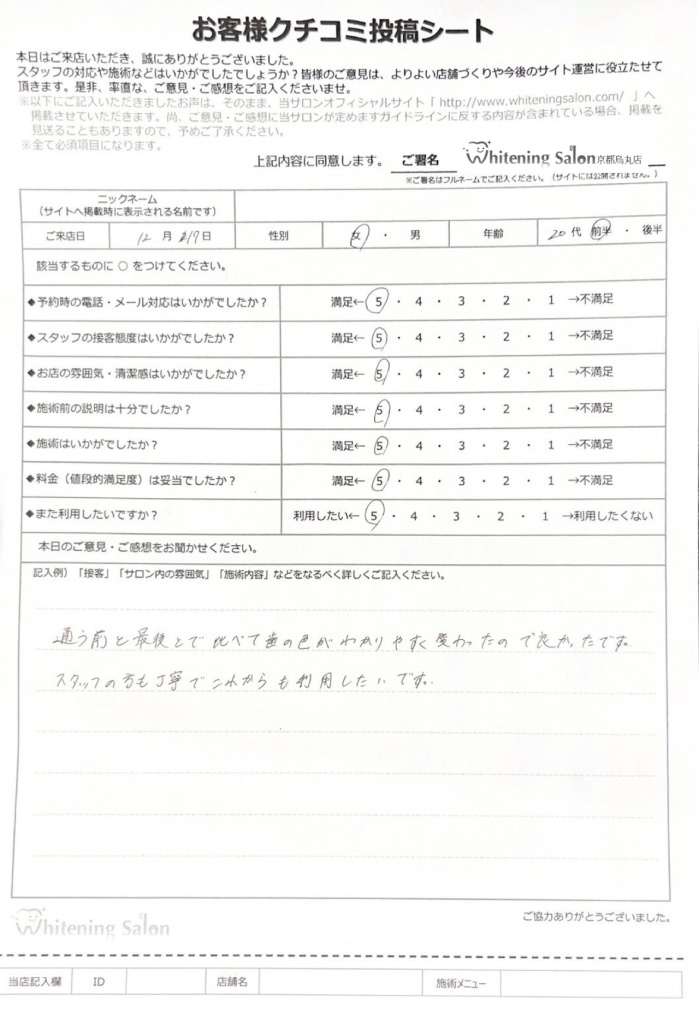 お客様クチコミ投稿シート
本日はご来店いただき、誠にありがとうございました。
スタッフの対応や施術などはいかがでしたでしょうか？皆様のご意見は、よりよい店舗づくりや今後のサイト運営に役立たせて
頂きます。是非、率直な、ご意見・ご感想をご記入くださいませ。
※以下にご記入いただきましたお声は、そのまま、当サロンオフィシャルサイト「 http://www.whiteningsalon.com/ 」へ
掲載させていただきます。尚、ご意見・ご感想に当サロンが定めますガイドラインに反する内容が含まれている場合、掲載を
見送ることもありますので、予めご了承ください。
※全て必須項目になります。
上記内容に同意します。 ご署名 Whitening Salon京都烏丸店
※ご署名はフルネームでご記入ください。（サイトには公開されません。）
ニックネーム
（サイトへ掲載時に表示される名前です）
ご来店日 12 月 17日 性別 女 ・ 男 年齢 20 代 前半 ・ 後半
該当するものに ○ をつけてください。
◆予約時の電話・メール対応はいかがでしたか？ 満足← 5 ・ 4 ・ 3 ・ 2 ・ 1 →不満足
◆スタッフの接客態度はいかがでしたか？ 満足← 5 ・ 4 ・ 3 ・ 2 ・ 1 →不満足
◆お店の雰囲気・清潔感はいかがでしたか？ 満足← 5 ・ 4 ・ 3 ・ 2 ・ 1 →不満足
◆施術前の説明は十分でしたか？ 満足← 5 ・ 4 ・ 3 ・ 2 ・ 1 →不満足
◆施術はいかがでしたか？ 満足← 5 ・ 4 ・ 3 ・ 2 ・ 1 →不満足
◆料金（値段的満足度）は妥当でしたか？ 満足← 5 ・ 4 ・ 3 ・ 2 ・ 1 →不満足
◆また利用したいですか？ 利用したい← 5 ・ 4 ・ 3 ・ 2 ・ 1 →利用したくない
本日のご意見・ご感想をお聞かせください。
記入例）「接客」「サロン内の雰囲気」「施術内容」などをなるべく詳しくご記入ください。
通う前と最後とで比べて歯の色がわかりやすく変わったので良かったです。
スタッフの方も丁寧でこれからも利用したいです。
Whitening Salon
ご協力ありがとうございました。
当店記入欄 ID 店舗名 施術メニュー